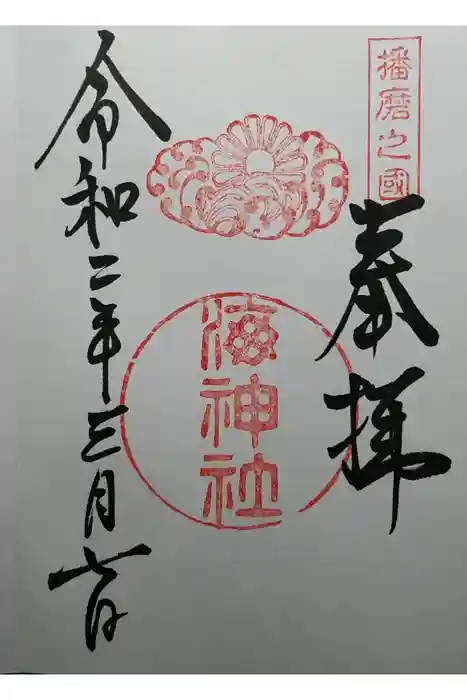 播磨之國
奉拝
海神社
令和二年三月七日